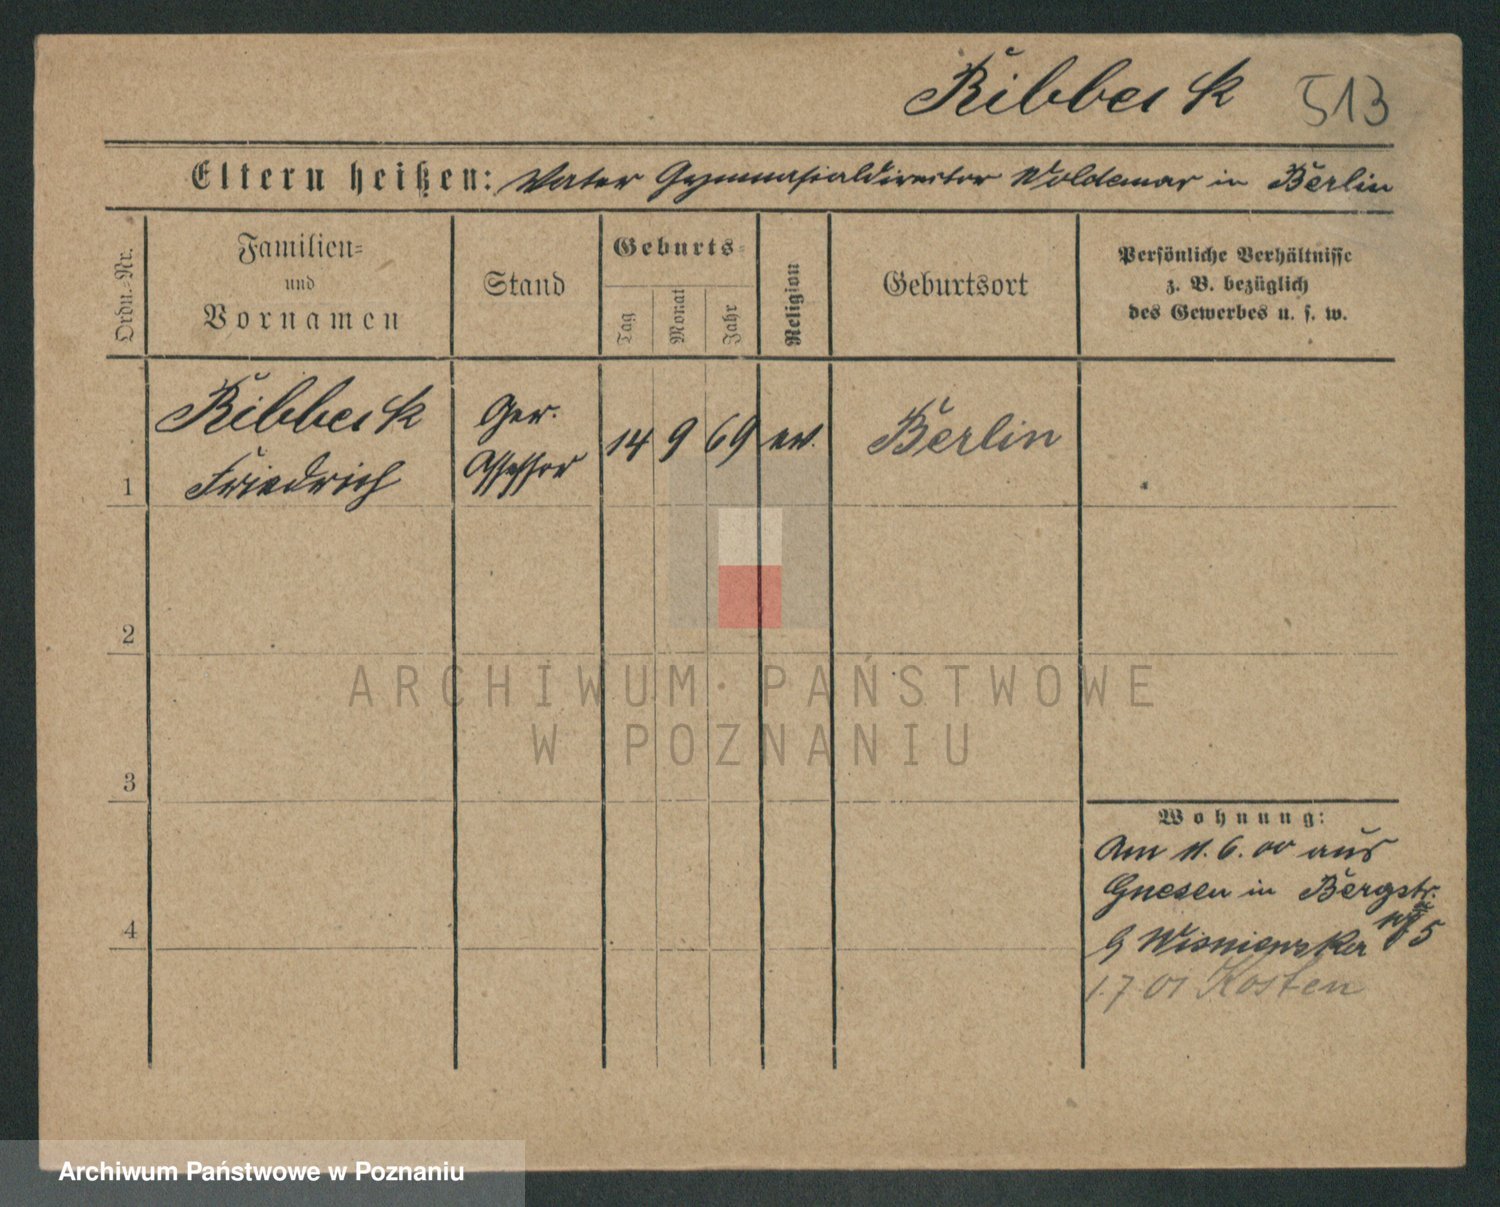 Ribbeck 513
Eltern heißen: Vater Gymnasialdirector Woldemar in Berlin
Ordn.-Nr.
Familien-
und
Vornamen
Stand
Geburts-
Tag
Monat
Jahr
Religion
Geburtsort
Persönliche Verhältnisse
z. B. bezüglich
des Gewerbes u. s. w.
1
Ribbeck
Friedrich
Ger.
Assessor
14 9 69 ev. Berlin
2
ARCHIWUM PAŃSTWOWE
W POZNANIU
3
Wohnung:
Am 11.6.00 aus
Gnesen in Bergstr.
b Wisniewska 5
4
1.7 01 Kosten
Archiwum Państwowe w Poznaniu